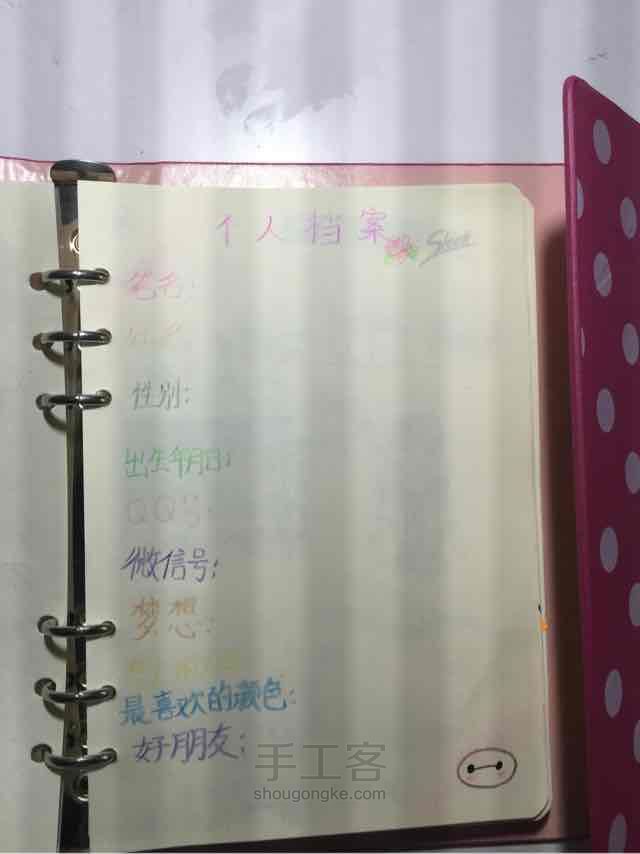 个人档案
笔名:
姓名:
性别:
出生年月日:
QQ号:
微信号:
梦想:
最喜欢的颜色:
好朋友:
手工客
shougongke.com